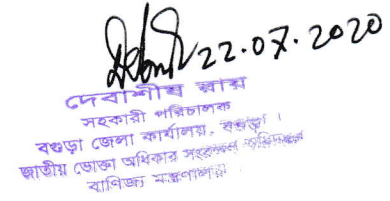 22.07.2020
দেবাশীষ রায়
সহকারী পরিচালক
বগুড়া জেলা কার্যালয়, বগুড়া।
জাতীয় ভোক্তা অধিকার সংরক্ষণ অধিদপ্তর
বাণিজ্য মন্ত্রণালয়